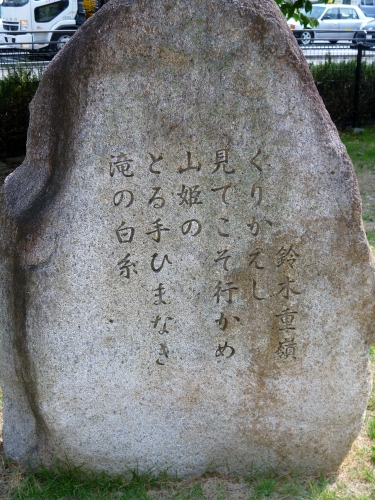 鈴木重嶺
くりかえし
見てこそ行かめ
山姫の
とる手ひまなき
滝の白糸